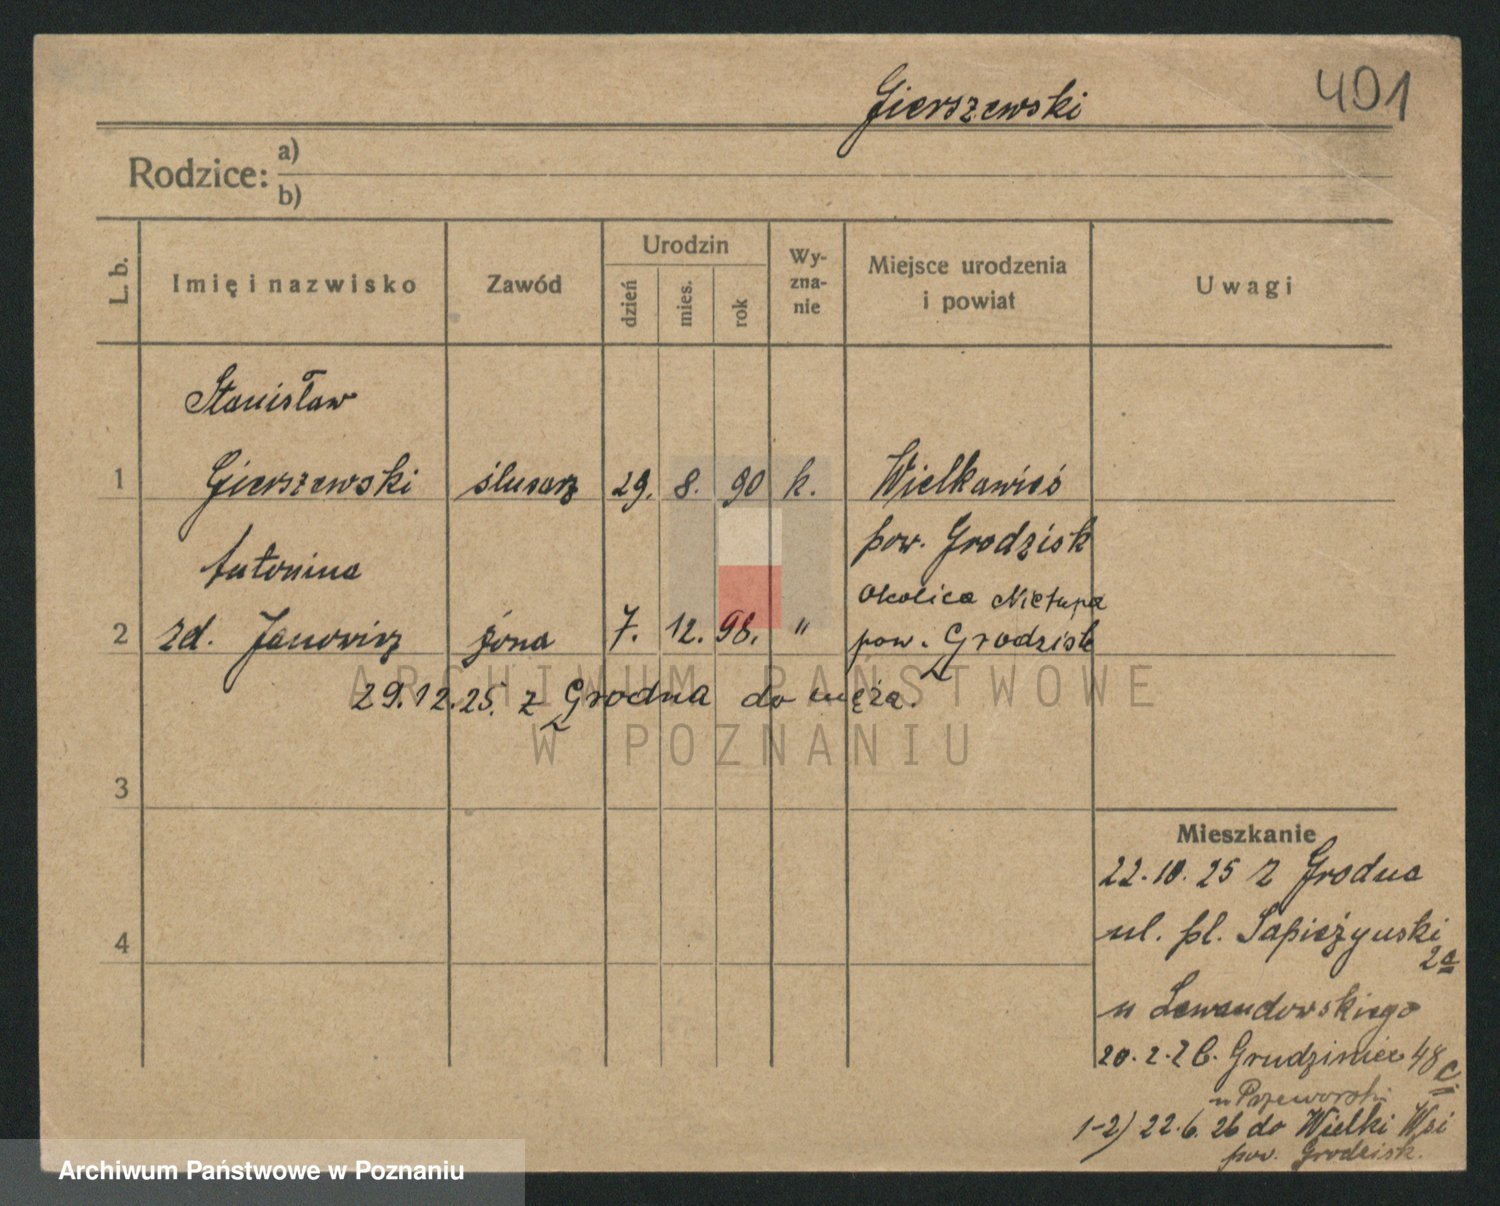 Gierszewski
491
Rodzice:
a)
b)
L. b.
Imię i nazwisko
Zawód
Urodzin
dzień
mies.
rok
Wy-
zna-
nie
Miejsce urodzenia
i powiat
Uwagi
Stanisław
1 Gierszewski ślusarz 29. 8. 90 k. Wielkawieś
pow. Grodzisk
Antonina
okolica Nietupa
2 zd. Janowicz żona 7. 12. 98. " pow. Grodzisk
29.12.25. z Grodna do męża.
ARCHIWUM PAŃSTWOWE
W POZNANIU
3
4
Mieszkanie
22.10.25 z Grodna
ul. pl. Sapieżyński
2a
u Lewandowskiego
20.2.26. Grudzieniec 48
c.
u Przeworski
1-2) 22.6.26 do Wielki Wsi
pow. Grodzisk.
Archiwum Państwowe w Poznaniu